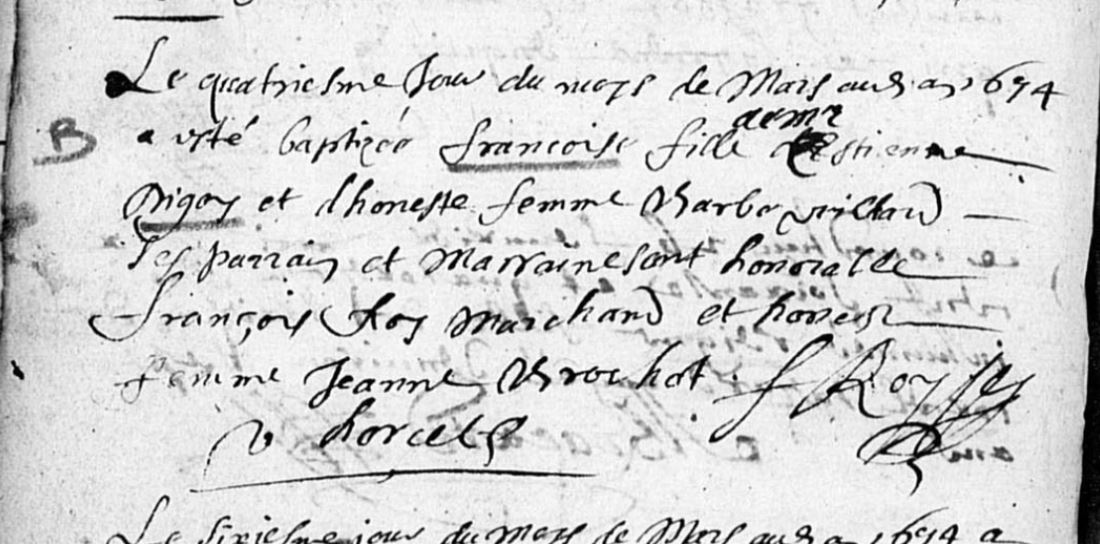 Le quatriesme Jour du moys de Mars aud an 1674
B
a esté baptizée francoise fille de mre Estienne
Pigoy et d'honeste femme Barbe villard
Ses parrain et Marraine sont honorable
françois Roy Marchand et honeste
femme Jeanne Brochot. f Roy
horcelz
Le sixiesme jour du moys de Mars aud an 1674 a